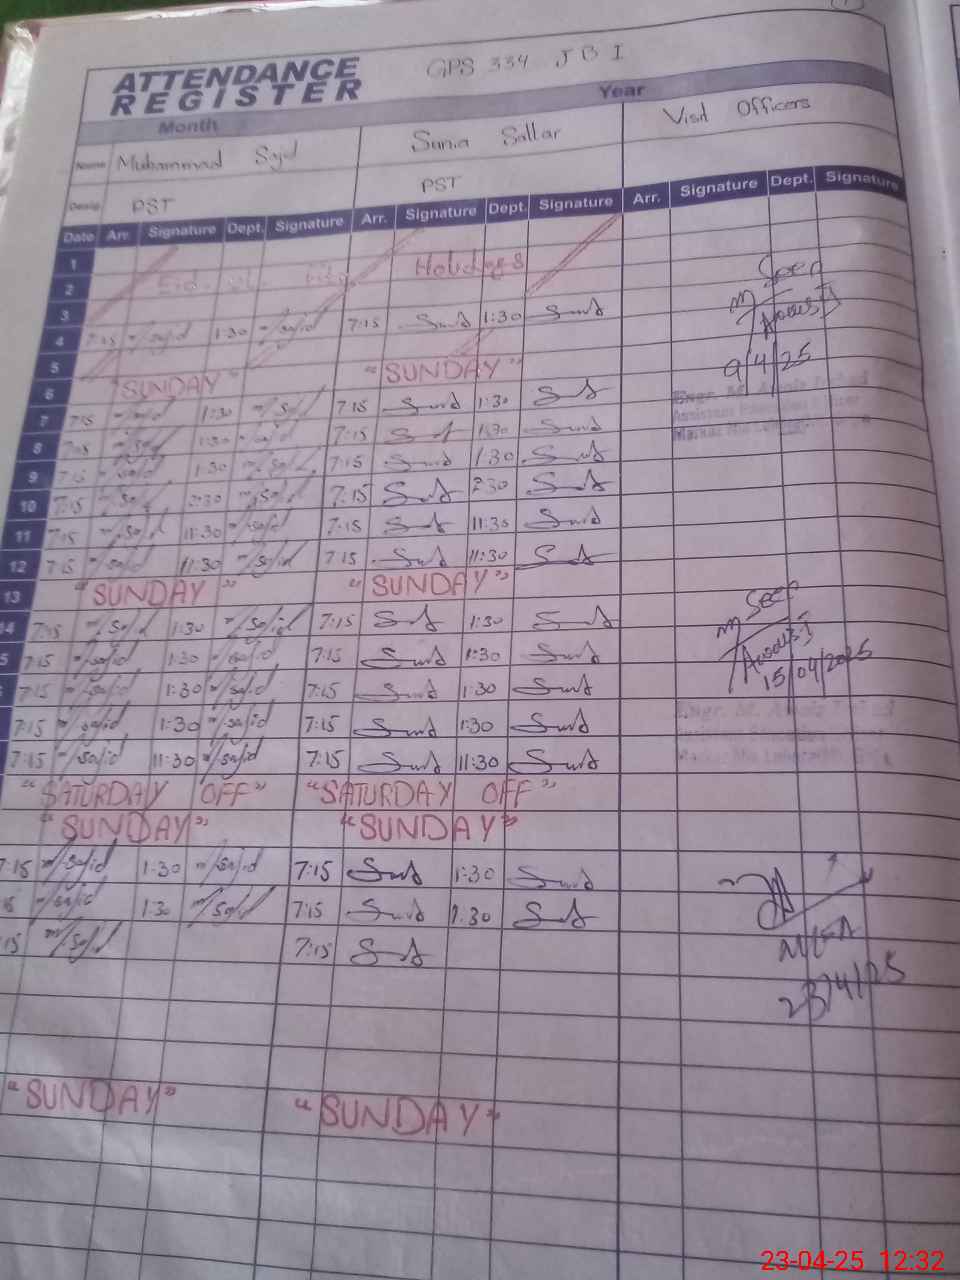 ATTENDANCE REGISTER
GPS 334 JBI
Month Year
Name Muhammad Sajid Sania Sattar Visit Officers
Desig. PST PST
Date Arr. Signature Dept. Signature Arr. Signature Dept. Signature Arr. Signature Dept. Signature
1
2 Holidays
3
4 7:15 m/sajid 1:30 m/sajid 7:15 1:30
5
6 "SUNDAY" "SUNDAY"
7 7:15 m/sajid 1:30 m/sajid 7:15 1:30
8 7:15 m/sajid 1:30 m/sajid 7:15 1:30
9 7:15 m/sajid 1:30 m/sajid 7:15 1:30
10 7:15 m/sajid 2:30 m/sajid 7:15 2:30
11 7:15 m/sajid 11:30 m/sajid 7:15 11:30
12 7:15 m/sajid 11:30 m/sajid 7:15 11:30
13 "SUNDAY" "SUNDAY"
14 7:15 m/sajid 1:30 m/sajid 7:15 1:30
5 7:15 m/sajid 1:30 m/sajid 7:15 1:30
7:15 m/sajid 1:30 m/sajid 7:15 1:30
7:15 m/sajid 1:30 m/sajid 7:15 1:30
7:15 m/sajid 11:30 m/sajid 7:15 11:30
"SATURDAY OFF" "SATURDAY OFF"
"SUNDAY" "SUNDAY"
7:15 m/sajid 1:30 m/sajid 7:15 1:30
15 m/sajid 1:30 m/sajid 7:15 1:30
:15 m/sajid 7:15
"SUNDAY" "SUNDAY"
Seen
9/4/25
Engr. M.
Assistant Education Officer
Markaz
Seen
15/04/2025
Engr. M.
Assistant Education Officer
Markaz
23/4/25
23-04-25 12:32